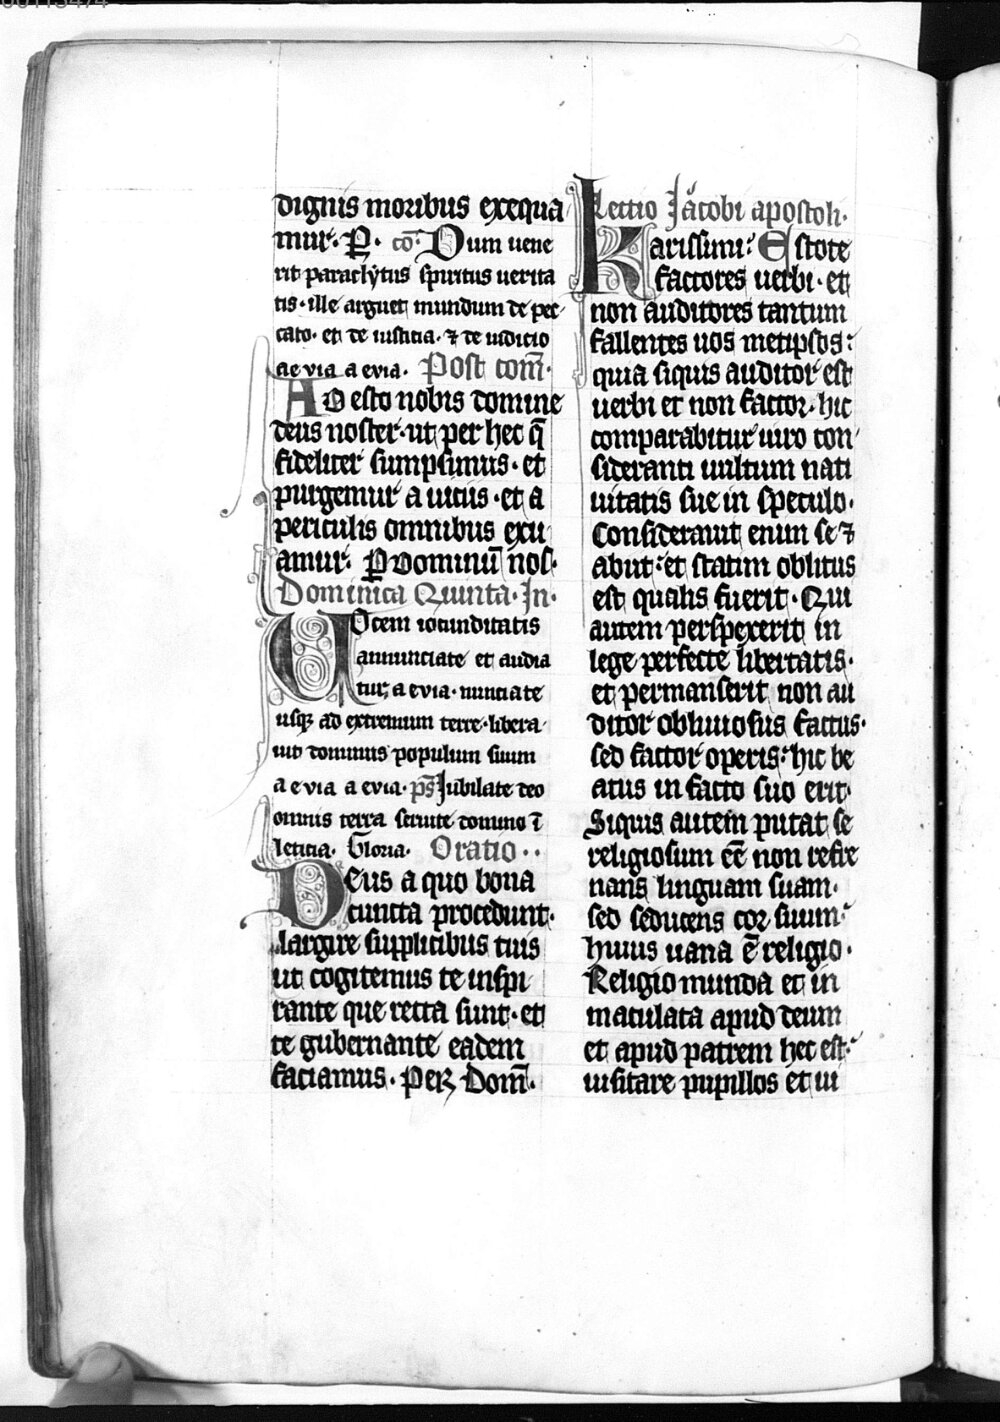 dignis moribus exequa
mur· P· co· Dum uene
rit paraclytus spiritus uerita
tis· ille arguet mundum de pec
cato· et de iusticia· ⁊ de iudicio
aevia aevia· Post com̄·
Adesto nobis domine
deus noster· ut per hec q̄
fideliter sumpsimus· et
purgemur a uiciis· et a
periculis omnibus exu
amur· P dominū nos·
Dominica Quinta· In·
Uocem iocunditatis
annunciate et audia
tur, aevia· nunciate
usqꝫ ad extremum terre· libera
uit dominus populum suum
aevia aevia· ps̄ Iubilate deo
omnis terra seruite domino ī
leticia· Gloria· Oratio··
Deus a quo bona
cuncta procedunt·
largire supplicibus tuis
ut cogitemus te inspi
rante que recta sunt· et
te gubernante eadem
faciamus· Per Dom̄·
Lectio Jacobi apostoli·
Karissimi: Estote
factores uerbi· et
non auditores tantum
fallentes uos metipsos:
quia siquis auditor est
uerbi et non factor· hic
comparabitur uiro con
sideranti uultum nati
uitatis sue in speculo·
Considerauit enim se ⁊
abiit: et statim oblitus
est qualis fuerit· Qui
autem perspexerit in
lege perfecte libertatis·
et permanserit non au
ditor obliuiosus factus·
sed factor operis: hic be
atus in facto suo erit·
Siquis autem putat se
religiosum eē non refre
nans linguam suam·
sed seducens cor suum:
huius uana ē religio·
Religio munda et in
maculata apud deum
et apud patrem hec est:
uisitare pupillos et ui